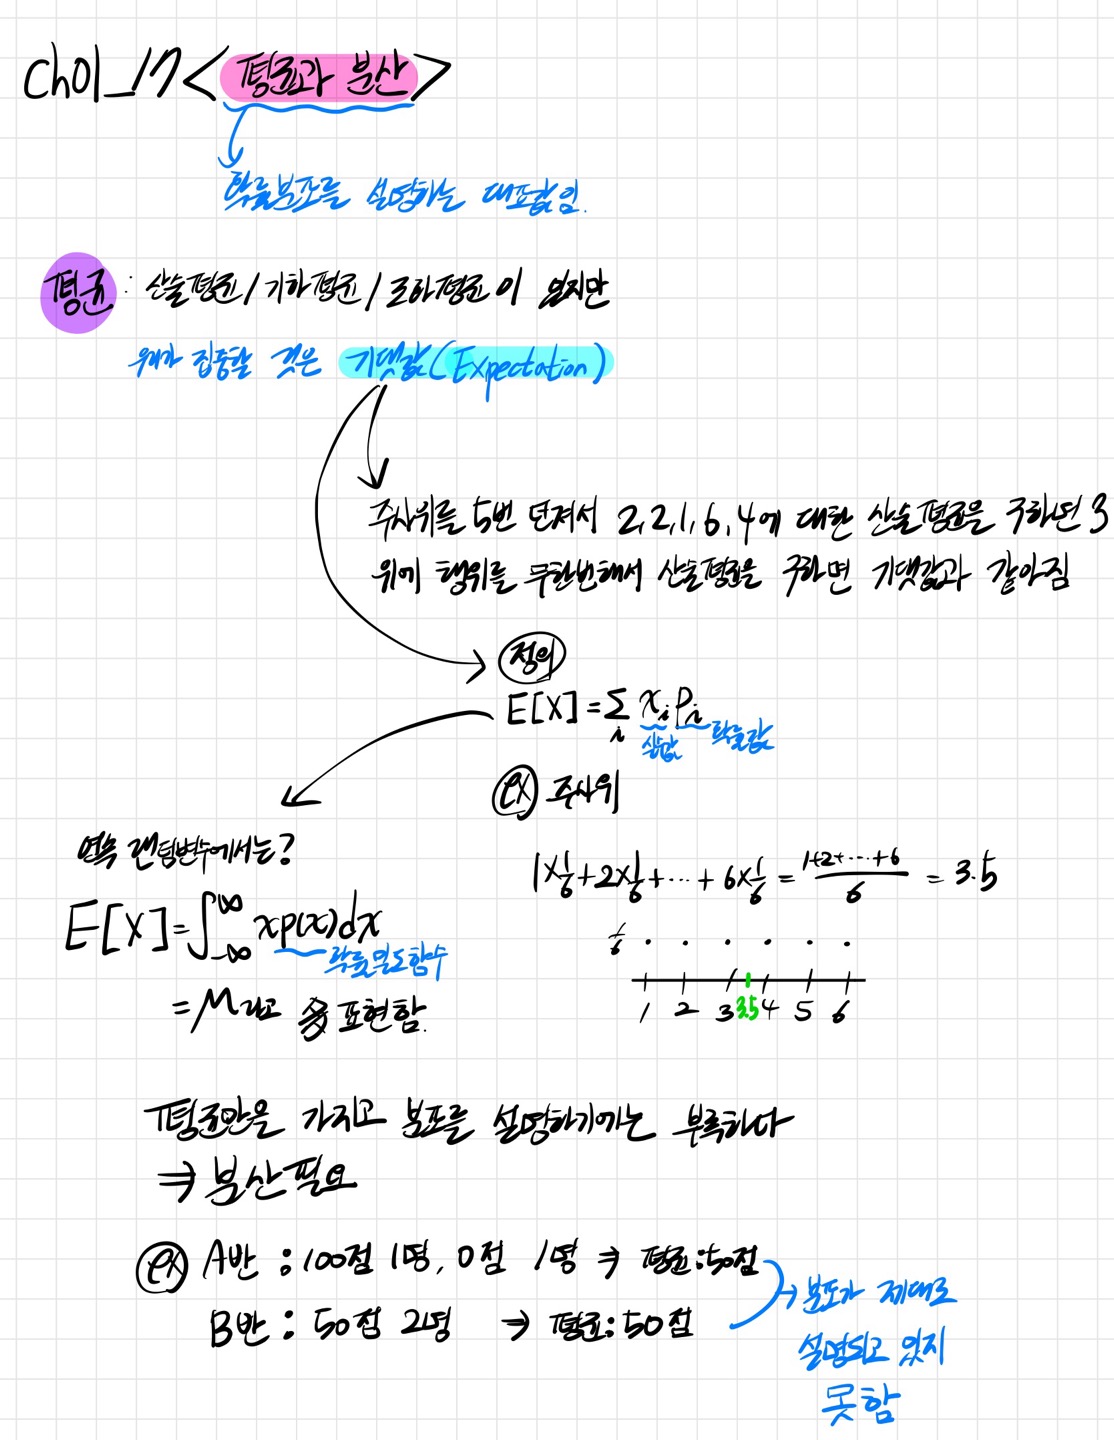 ch01_17 <평균과 분산>
확률분포를 설명하는 대표값임.
평균 : 산술평균/기하평균/조화평균이 있지만
우리가 집중할 것은 기댓값(Expectation)
주사위를 5번 던져서 2,2,1,6,4에 대한 산술평균을 구하면 3
위에 행위를 무한번해서 산술평균을 구하면 기댓값과 같아짐
정의
E[X] = Σ_i x_i p_i
확률값
ex) 주사위
연속 랜덤변수에서는?
1×1/6+2×1/6+⋯+6×1/6 = (1+2+⋯+6)/6 = 3.5
E[X]=∫_{-∞}^{∞} x p(x)dx
확률밀도함수
1/6
=μ라고 표현함.
1 2 3 3.5 4 5 6
평균만을 가지고 분포를 설명하기에는 부족하다
⇒ 분산필요
ex) A반 : 100점 1명, 0점 1명 ⇒ 평균:50점
B반 : 50점 2명 ⇒ 평균:50점
→ 분포가 제대로
설명되고 있지
못함